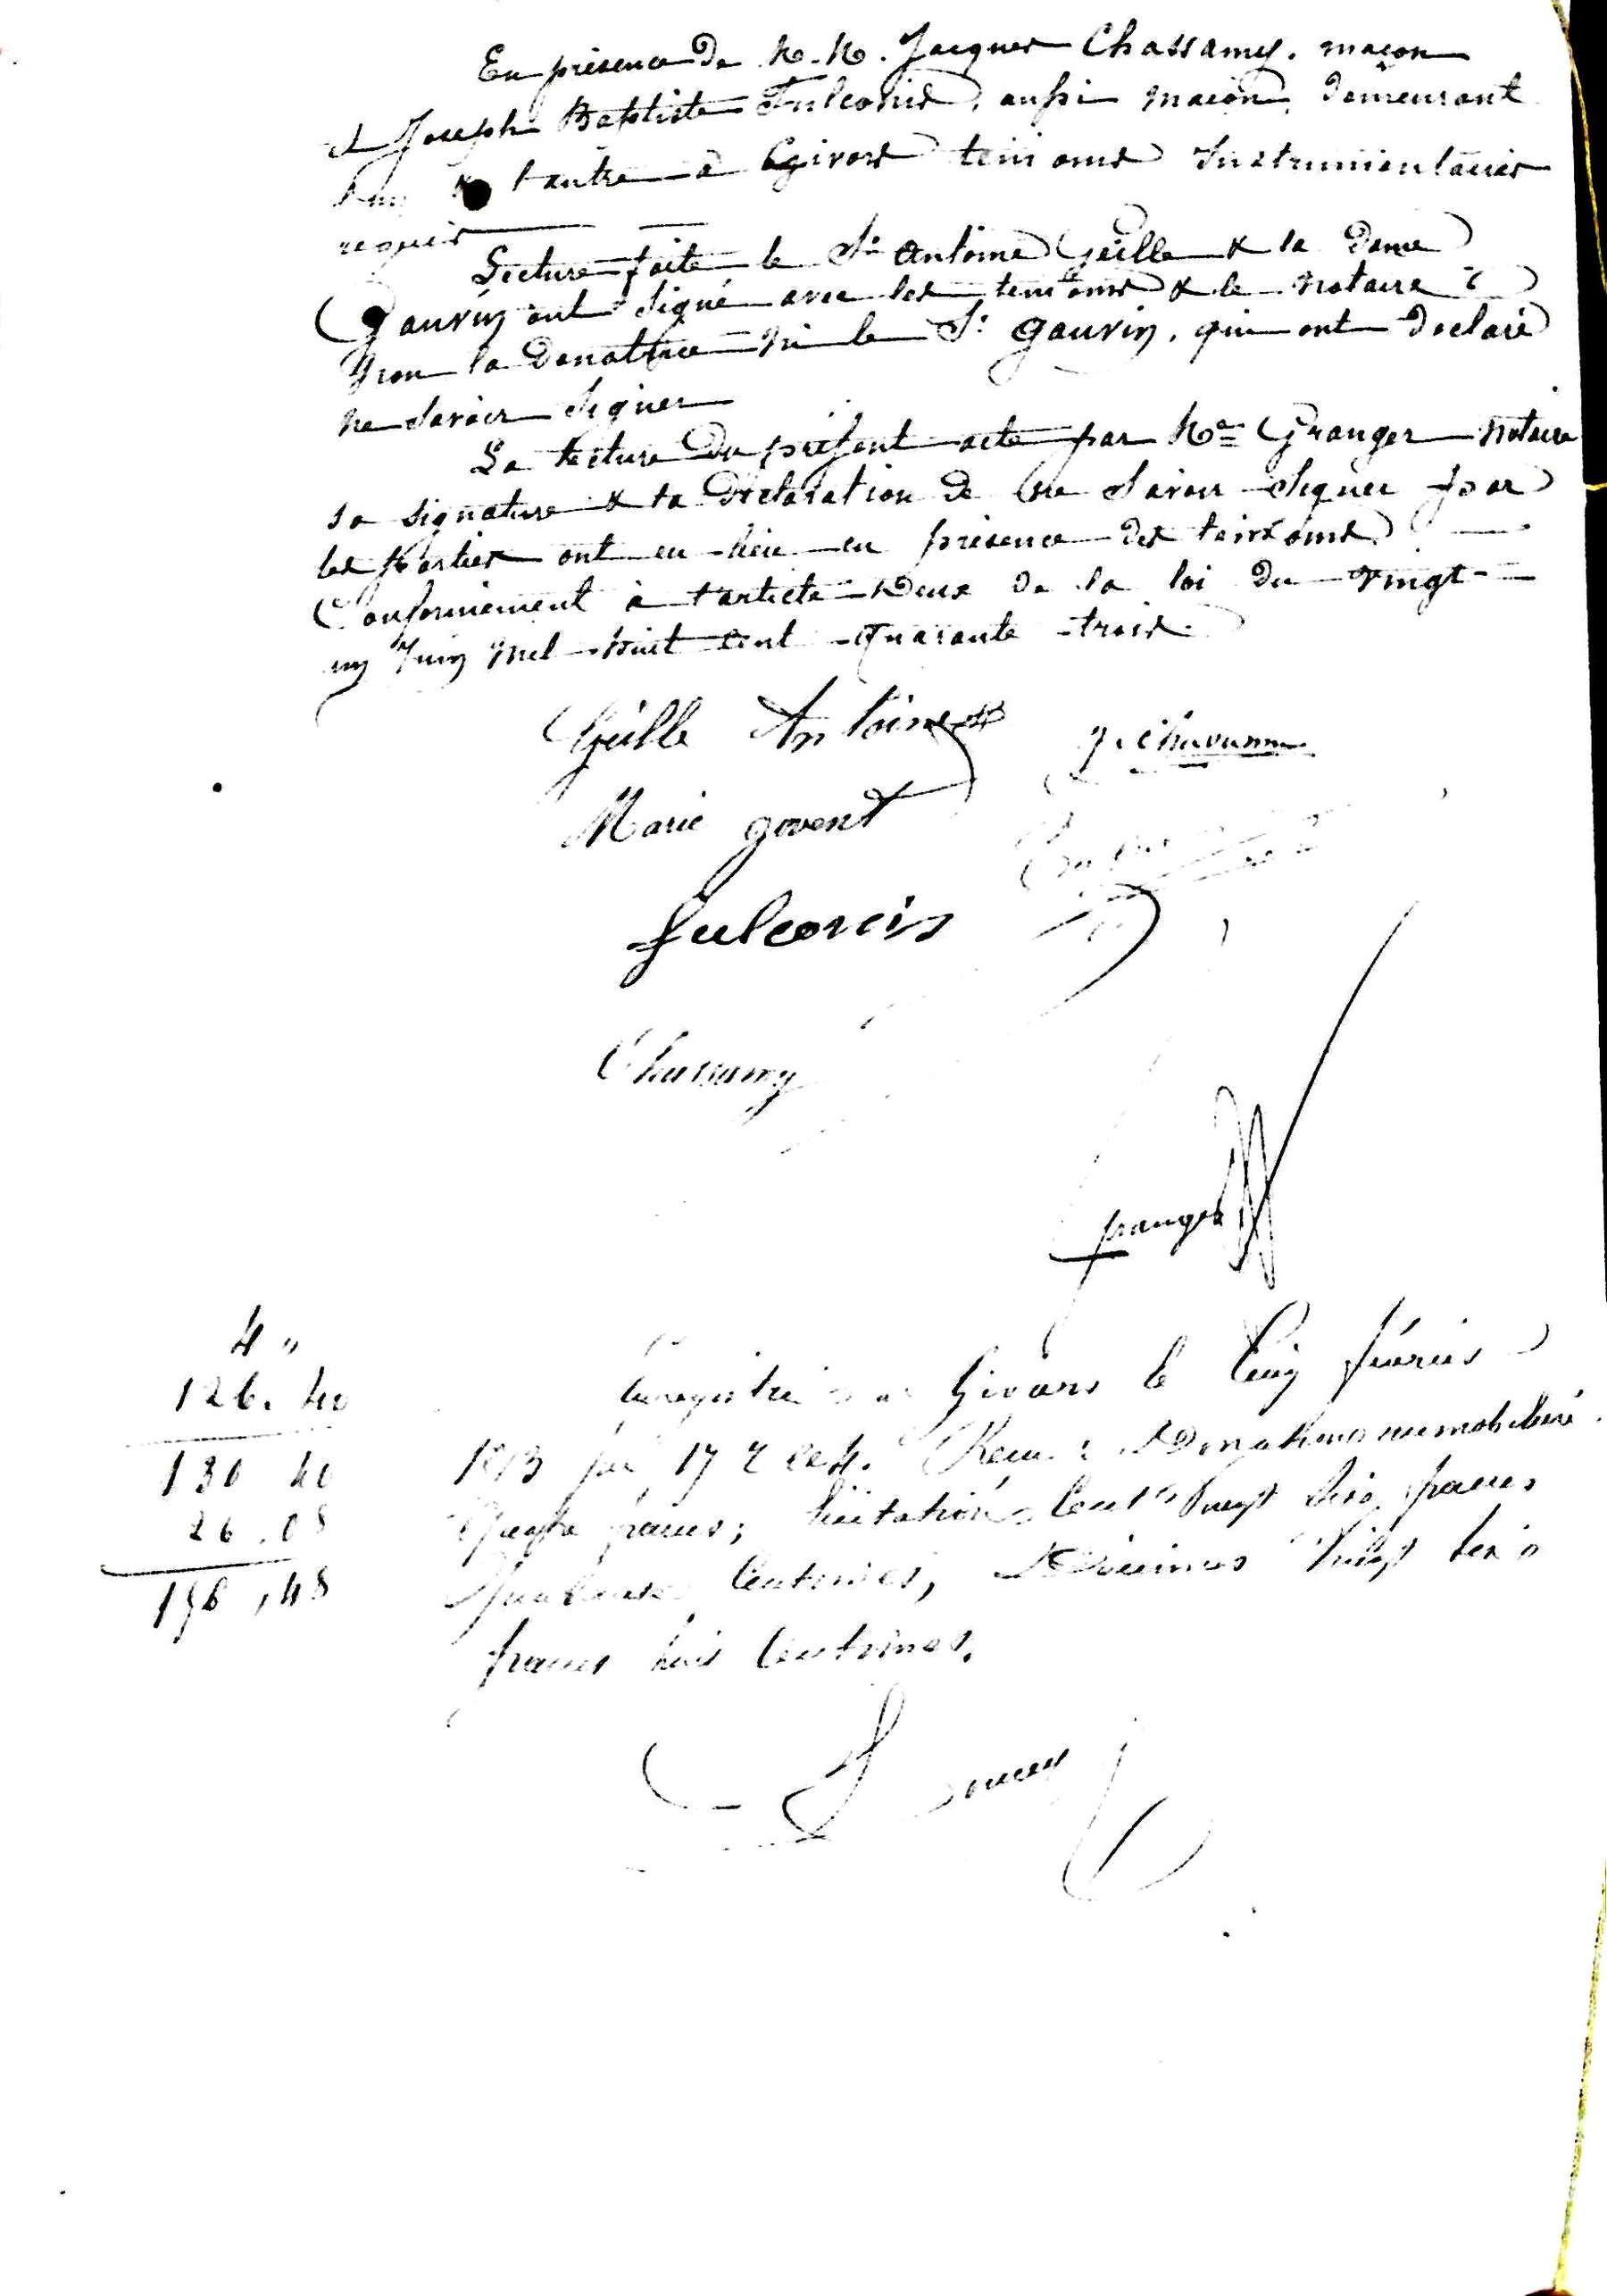 En présence de M.M. Jacques Chassamy, maçon
et Joseph Baptiste Fulconis, aussi maçon, demeurant
l'un & l'autre à Givors témoins Instrumentaires
requis
Lecture faite le Sr Antoine Geille & la Dame
Gauvin ont signé avec les témoins & le notaire
non la Donatrice ni le Sr Gauvin, qui ont déclaré
ne savoir signer
La lecture du présent acte par Me Granger notaire
sa signature & la déclaration de ne savoir signer par
les parties ont eu lieu en présence des témoins
Conformément à l'article Deux de la loi du vingt
un Juin mil huit cent quarante trois.
Geille Antoine
Marie govent
fulconis
Chassamy
granger
4 "
126. 40
130 40
26.08
156,48
Enregistré à Givors le Cinq février
Reçu: Donations immobilière
Quatre francs; licitation Cent Vingt Six francs
Quarante Centimes, Décimes Vingt Six
francs huit Centimes.